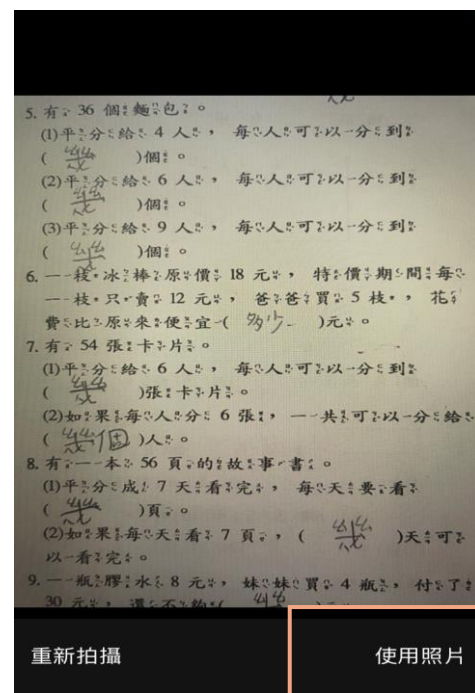 5. 有 36 個麵包。
(1)平分給 4 人，每人可以分到
( 幾 )個。
(2)平分給 6 人，每人可以分到
( 幾 )個。
(3)平分給 9 人，每人可以分到
( 幾 )個。
6. 一枝冰棒原價 18 元，特價期間每
一枝只賣 12 元，爸爸買 5 枝，花
費比原來便宜( 多少 )元。
7. 有 54 張卡片。
(1)平分給 6 人，每人可以分到
( 幾 )張卡片。
(2)如果每人分 6 張，一共可以分給
( 幾個 )人。
8. 有一本 56 頁的故事書。
(1)平分成 7 天看完，每天要看
( 幾 )頁。
(2)如果每天看 7 頁，( 幾 )天可
以看完。
9. 一瓶膠水 8 元，妹妹買 4 瓶，付了
30 元，還不夠(
重新拍攝
使用照片